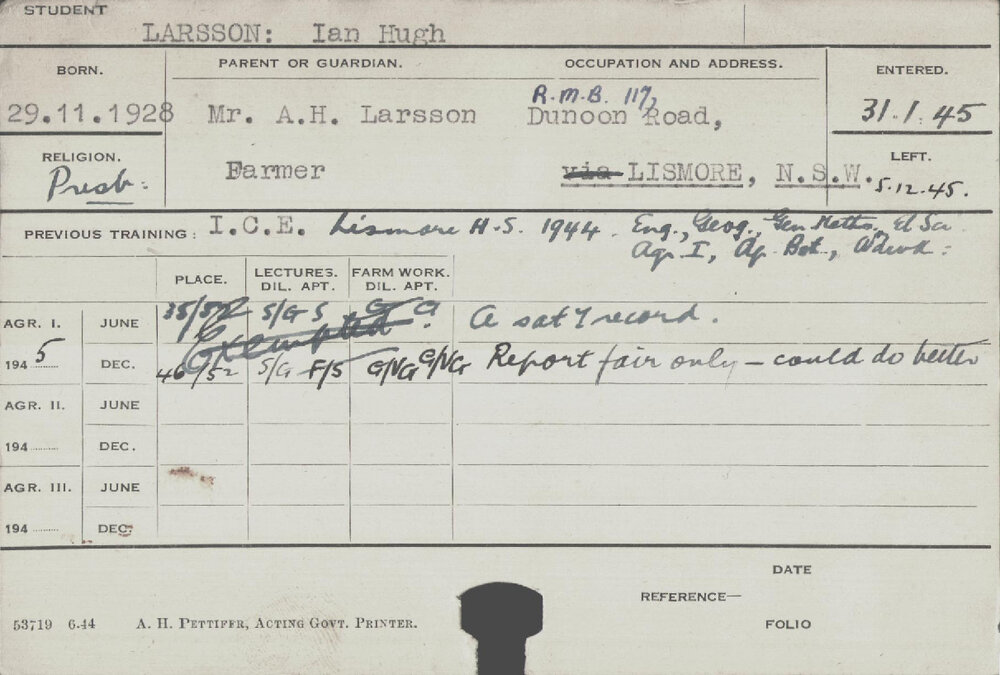 STUDENT
LARSSON: Ian Hugh
BORN. PARENT OR GUARDIAN. OCCUPATION AND ADDRESS. ENTERED.
R.M.B. 117,
29.11.1928 Mr. A.H. Larsson Dunoon Road, 31.1.45
RELIGION. LEFT.
Presb: Farmer via LISMORE, N.S.W. 5.12.45.
PREVIOUS TRAINING: I.C.E. Lismore H.S. 1944. Eng., Geog., Gen Maths, El Sci
Agr. I, Ap. Bot., Wdwk:
PLACE. LECTURES. FARM WORK.
DIL. APT. DIL. APT.
AGR. I. JUNE 35/52 S/G S G G A sat'y record.
Exempted.
1945 DEC. 46/52 S/G F/S G/VG G/VG Report fair only – could do better
AGR. II. JUNE
194 DEC.
AGR. III. JUNE
194 DEC.
DATE
REFERENCE—
53719 6.44 A. H. PETTIFER, ACTING GOVT. PRINTER. FOLIO